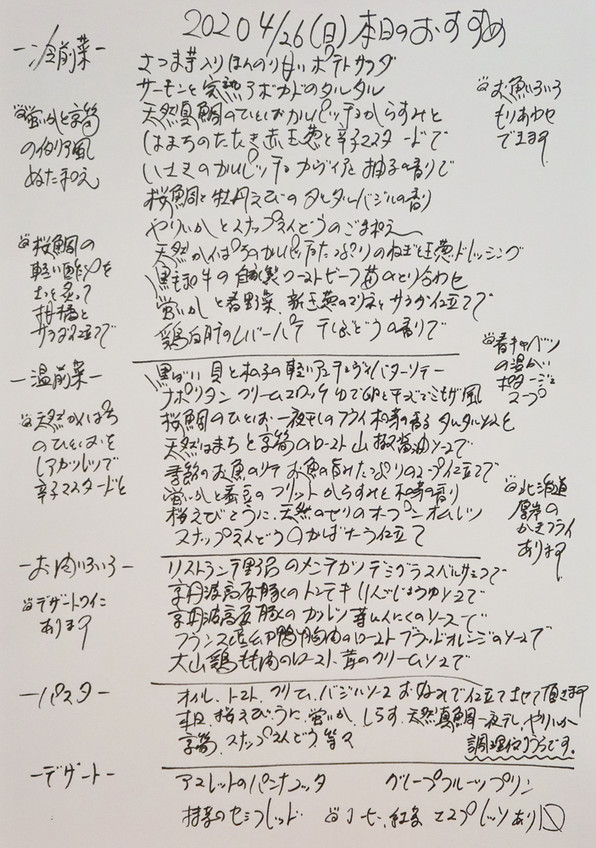 2020 4/26(日)本日のおすすめ
ー冷前菜ー
さつま芋入りほんのり甘いポテトサラダ
サーモンと完熟アボカドのタルタル
天然真鯛のひとしおカルパッチョからすみと
はまちのたたき赤玉葱と辛子マスタードで
カルパッチョ キャヴィアと柚子の香りで
桜鯛と牡丹えびのタルタルバジルの香り
やりいかとスナップえんどうのごまあえ
天然かんぱちのカルパッチョたっぷりのねぎと玉葱ドレッシング
黒毛和牛の自家製ローストビーフ
蛍いかと春野菜、新玉葱のマリネとサラダ仕立てで
鶏白肝のレバーパテ 干しぶどうの香りで
蛍いかと京筍
のイタリア風
ぬたあえ
桜鯛の
軽い酢〆を
柑橘と
サラダ仕立てで
お魚いろいろ
もりあわせ
できます
ー温前菜ー
ナポリタンクリームコロッケ
桜鯛のひとしお一夜干しのフライ木の芽香るタルタルソースを
天然はまちと京筍のロースト山椒醤油ソースで
季節のお魚のソテーお魚の旨みたっぷりのスープ仕立てで
蛍いかと蚕豆のフリット からすみと木の芽の香り
桜えびとうに、天然のせりのオープンオムレツ
スナップえんどうのかばたう仕立て
天然かんぱち
のひとしおを
レアカツレツで
辛子マスタードと
春キャベツ
の温かい
ポタージュ
スープ
北海道
厚岸の
かきフライ
あります
ーお肉いろいろー
リストランテ野呂のメンチカツ デミグラスソースで
京丹波高原豚のトンテキ りんごしょうゆソースで
京丹波高原豚のカツレツ 芽にんにくのソースで
フランス産 鴨胸肉のロースト ブラッドオレンジのソースで
大山鶏もも肉のロースト 茸のクリームソースで
デザートワイン
あります
ーパスター
オイル、トマト、クリーム、バジルソース お好みで仕立てさせて頂きます
本日、桜えび、うに、蛍いか、しらす、天然真鯛一夜干し、やりいか
京筍、スナップえんどう、等々
調理法いろいろです。
ーデザートー
パンナコッタ グレープフルーツプリン
セミフレッド コーヒー、紅茶 エスプレッソあり